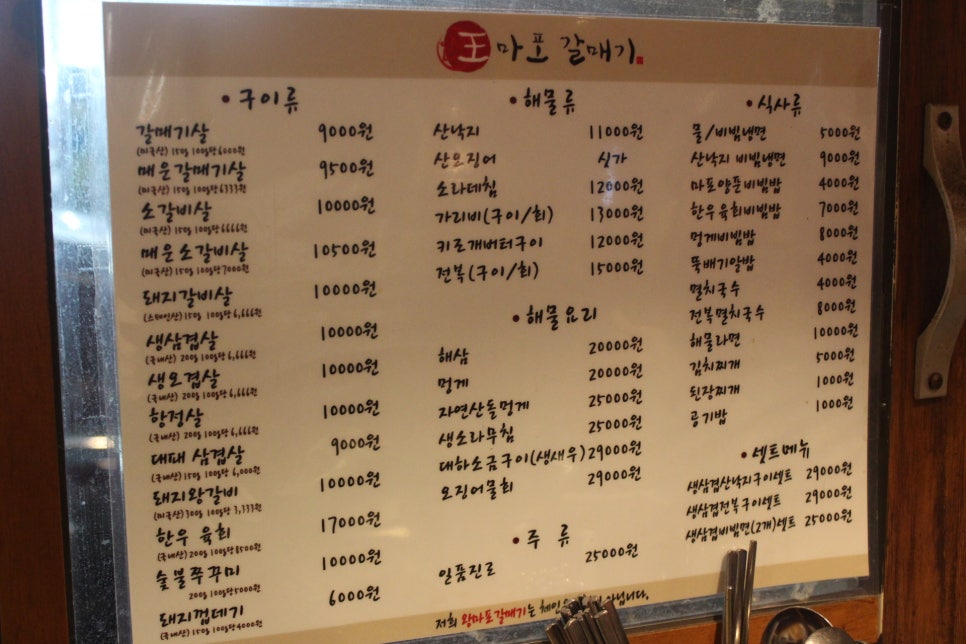 王 마포 갈매기
• 구이류
갈매기살 9000원
(미국산) 150g 100g당 6000원
매운갈매기살 9500원
(미국산) 150g 100g당 6333원
소갈비살 10000원
(미국산) 150g 100g당 6666원
매운소갈비살 10500원
(미국산) 150g 100g당 7000원
돼지갈비살 10000원
(스페인산) 150g 100g당 6,666원
생삼겹살 10000원
(국내산) 200g 100g당 6,666원
생오겹살 10000원
(국내산) 200g 100g당 6,666원
항정살 10000원
(국내산) 200g 100g당 6,666원
대패 삼겹살 9000원
(국내산) 150g 100g당 6,000원
돼지왕갈비 10000원
(미국산) 300g 100g당 3,333원
한우 육회 17000원
(국내산) 200g 100g당 8500원
숯불쭈꾸미 10000원
200g 100g당 5000원
돼지껍데기 6000원
(국내산) 150g 100g당 4000원
• 해물류
산낙지 11000원
산오징어 싯가
소라데침 12000원
가리비(구이/회) 13000원
키조개버터구이 12000원
전복(구이/회) 15000원
• 해물요리
해삼 20000원
멍게 20000원
자연산돌멍게 25000원
생소라무침 25000원
대하소금구이(생새우) 29000원
오징어물회 29000원
• 주 류
일품진로 25000원
• 식사류
물/비빔냉면 5000원
산낙지 비빔냉면 9000원
마포양푼비빔밥 4000원
한우육회비빔밥 7000원
멍게비빔밥 8000원
뚝배기알밥 4000원
멸치국수 4000원
전복멸치국수 8000원
해물라면 10000원
김치찌개 5000원
된장찌개 1000원
공기밥 1000원
• 셋트메뉴
생삼겹산낙지구이셋트 29000원
생삼겹전복구이셋트 29000원
생삼겹비빔면(2개)셋트 25000원
저희 왕마포갈매기는 체인 아닙니다.